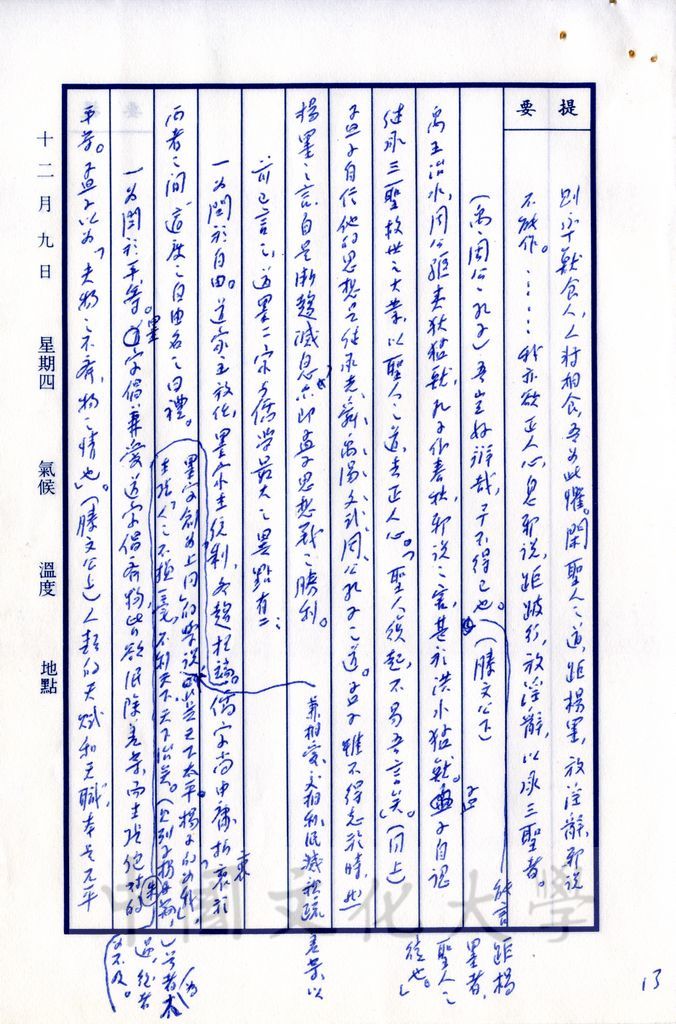 提要
則率獸食人,人將相食,吾為此懼。閑聖人之道,距楊墨,放淫辭,邪說
不能作。……我亦欲正人心,息邪說,距跛行,放淫辭,以承三聖者。
(禹、周公、孔子)吾豈好辯哉,予不得已也。(滕文公下)
能言距楊墨者,聖人之徒也。」
禹王治水,周公驅夷狄猛獸,孔子作春秋,邪說之害,甚於洪水猛獸。孟子自認
繼承三聖救世之大業,以聖人之道,去正人心。「聖人復起,不易吾言矣。」(同上)
孟子自信他的思想是繼承堯、舜、禹、湯、文、武、周公、孔子之道。孟子雖不得志於時,然
楊墨之言,自是漸趨滅息,亦即孟子思想戰之勝利。
前已言之,道墨二家與儒學最大之異點有二:
一為關於自由。道家主放任,墨家主統制,各趨極端。儒家尚中庸,折衷於
兩者之間,適度之自由名之曰禮。
墨家創為上同的學說
主張「人人不損一毫,不利天下,天下治矣。」
兼相愛,交相利,泯滅親疏差等,以
一為關於平等。墨家倡兼愛,道家倡齊物,皆欲泯除差等,而主張絕對的
平等。孟子以為「夫物之不齊,物之情也」。(滕文公上)人類的天賦和天職,本是不平
十二月九日 星期四 氣候 溫度 地點
中國文化大學
13